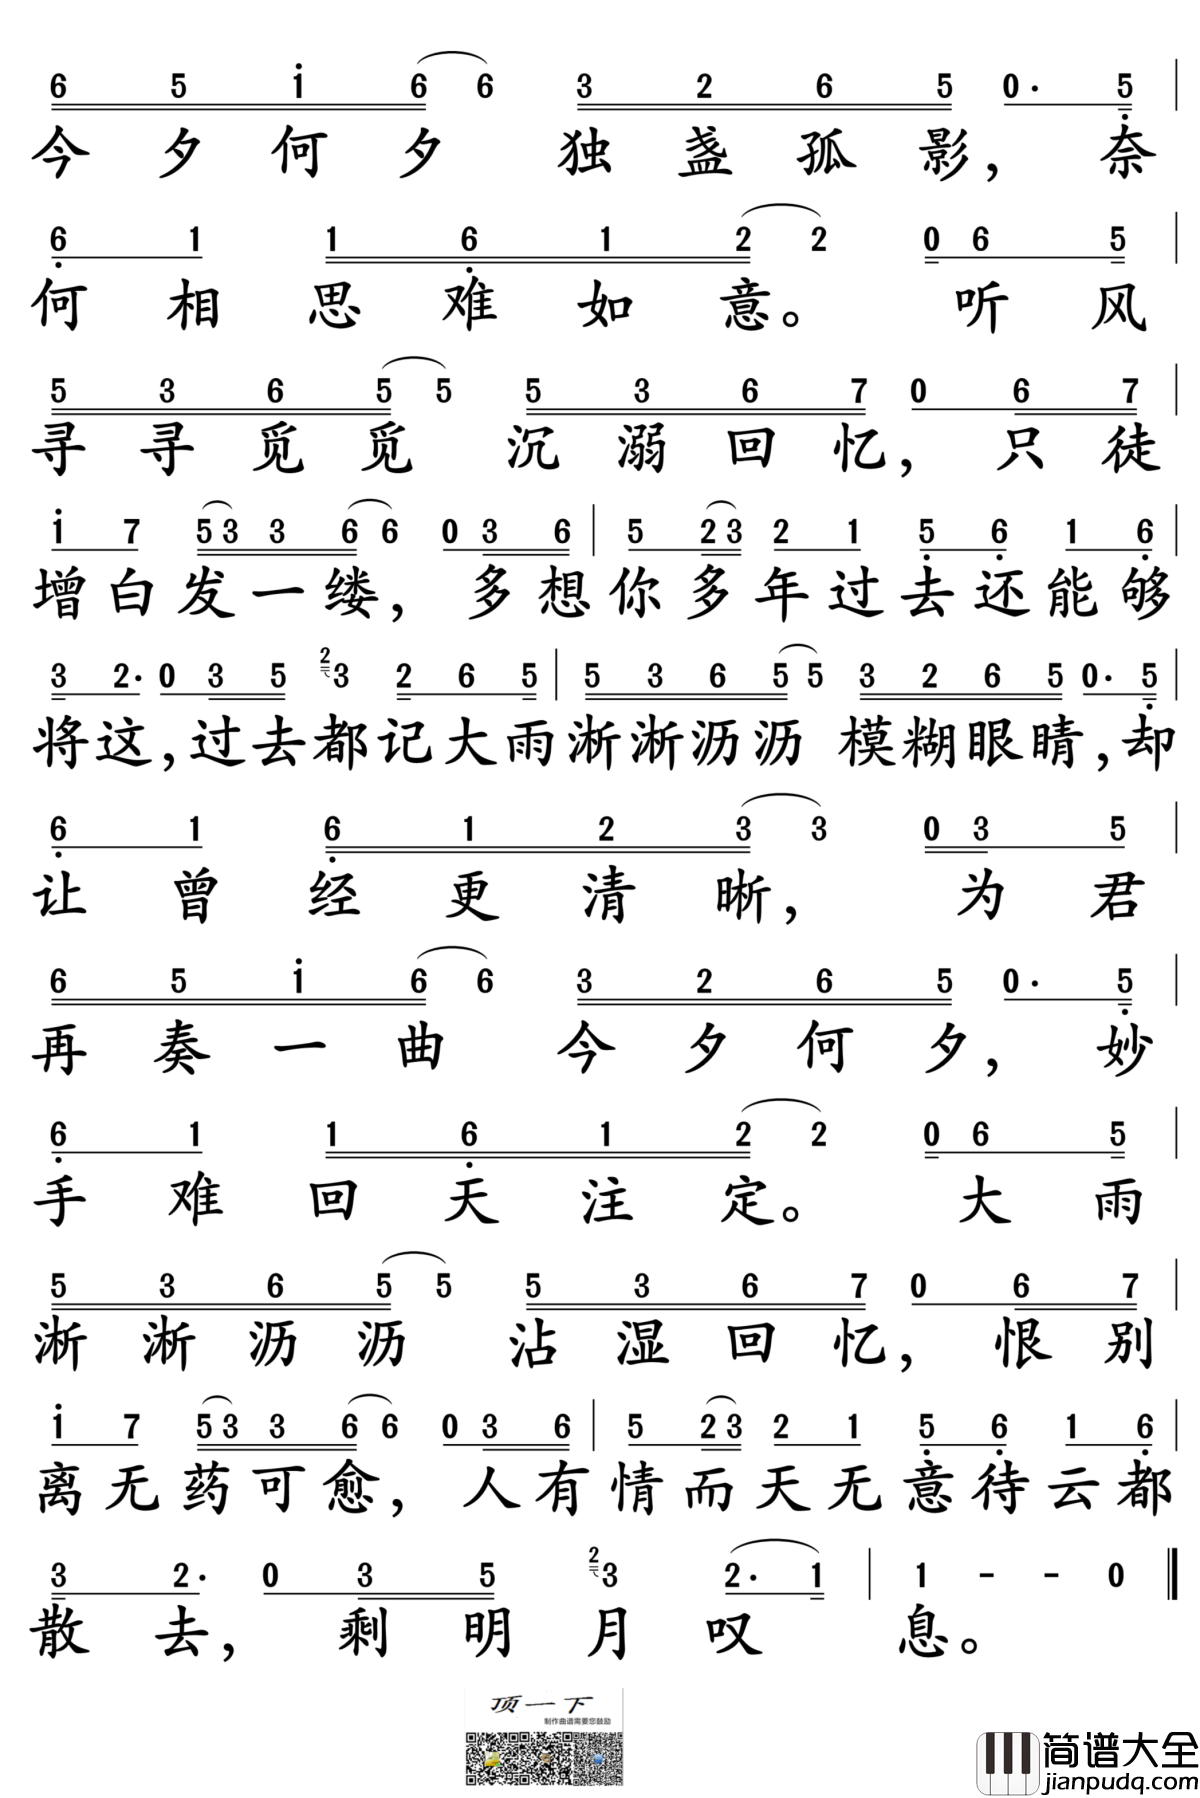 6 5 1 6 6 3 2 6 5 0· 5
今夕何夕 独盏孤影，奈
6 1 1 6 1 2 2 0 6 5
何相思难如意。 听风
5 3 6 5 5 5 3 6 7 0 6 7
寻寻觅觅 沉溺回忆，只徒
1 7 5 3 3 6 6 0 3 6 5 2 3 2 1 5 6 1 6
增白发一缕，多想你多年过去还能够
3 2· 0 3 5 2 3 2 6 5 5 3 6 5 5 3 2 6 5 0· 5
将这，过去都记大雨淅淅沥沥 模糊眼睛，却
6 1 6 1 2 3 3 0 3 5
让曾经更清晰， 为君
6 5 1 6 6 3 2 6 5 0· 5
再奏一曲 今夕何夕，妙
6 1 1 6 1 2 2 0 6 5
手难回天注定。 大雨
5 3 6 5 5 5 3 6 7 0 6 7
淅淅沥沥 沾湿回忆，恨别
1 7 5 3 3 6 6 0 3 6 5 2 3 2 1 5 6 1 6
离无药可愈，人有情而天无意待云都
3 2· 0 3 5 2 3 2· 1 1 - - 0
散去，剩明月叹 息。
顶一下
制作曲谱需要您鼓励
简谱大全
jianpudq.com